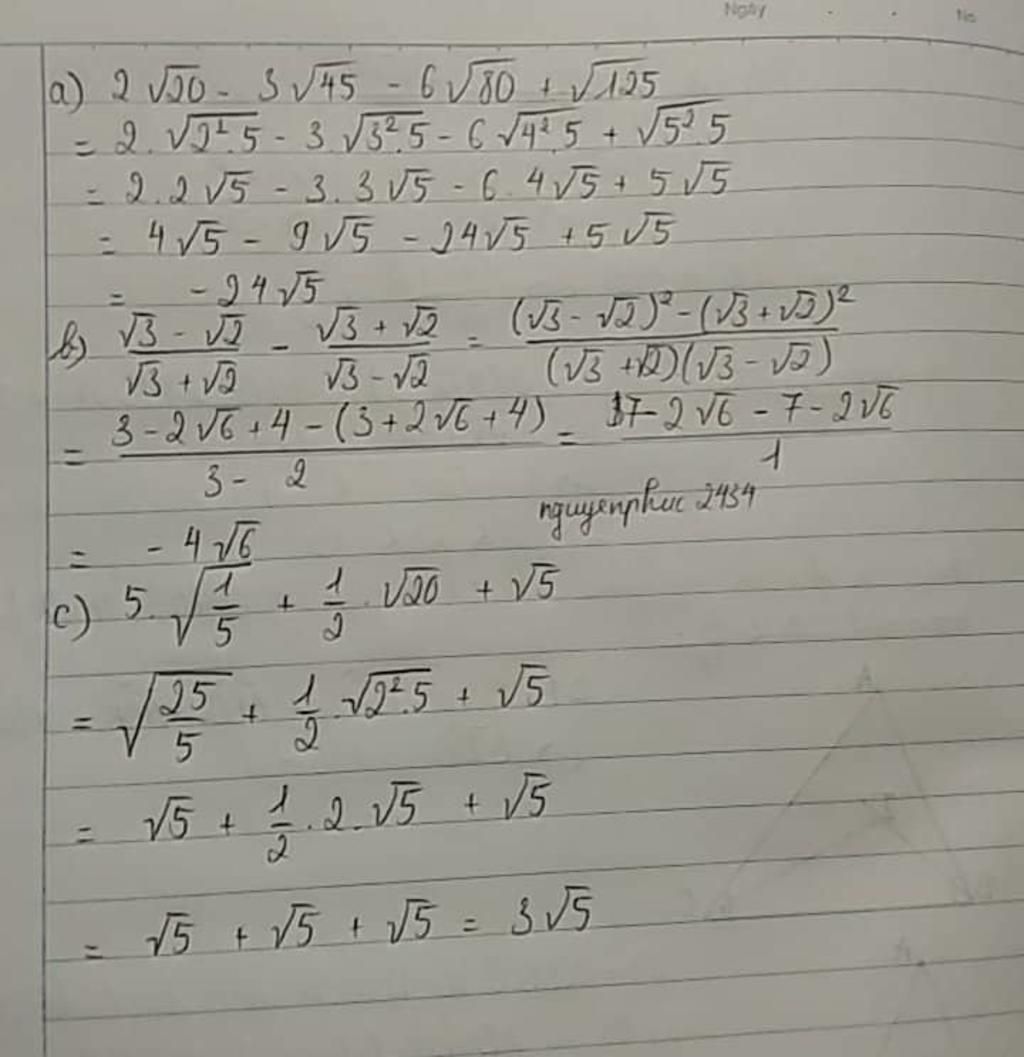 Ngày . . No
a) 2√20 - 3√45 - 6√80 + √125
= 2.√2².5 - 3.√3².5 - 6√4².5 + √5².5
= 2.2√5 - 3.3√5 - 6.4√5 + 5√5
= 4√5 - 9√5 - 24√5 + 5√5
= -24√5
b) (√3 - √2)/(√3 + √2) - (√3 + √2)/(√3 - √2) = ((√3 - √2)² - (√3 + √2)²)/((√3 + √2)(√3 - √2))
= (3 - 2√6 + 4 - (3 + 2√6 + 4))/(3 - 2) = (7 - 2√6 - 7 - 2√6)/1
nguyenphuc2434
= -4√6
c) 5.√(1/5) + 1/2.√20 + √5
= √(25/5) + 1/2.√2².5 + √5
= √5 + 1/2.2.√5 + √5
= √5 + √5 + √5 = 3√5